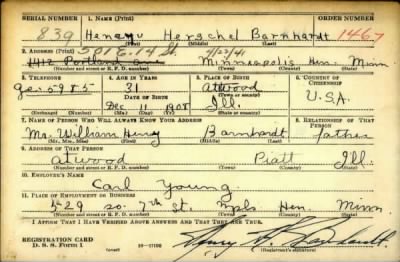 SERIAL NUMBER 1. NAME (Print)
839 Henery Herschel Barnhardt 1467
(First) (Middle) (Last)
501 E. 14 St. 4/22/41
2. ADDRESS (Print)
1412 Portland ave Minneapolis Hen. Minn
(Number and street or R. F. D. number) (Town) (County) (State)
3. TELEPHONE 4. AGE IN YEARS 5. PLACE OF BIRTH 6. COUNTRY OF CITIZENSHIP
Ge. 5985 31 Atwood
DATE OF BIRTH (Town or county)
Dec 11 1908 Ill. U.S.A.
(Exchange) (Number) (Mo.) (Day) (Yr.) (State or country)
7. NAME OF PERSON WHO WILL ALWAYS KNOW YOUR ADDRESS 8. RELATIONSHIP OF THAT PERSON
Mr. William Henry Barnhardt father
(Mr., Mrs., Miss) (First) (Middle) (Last)
9. ADDRESS OF THAT PERSON
Atwood Piatt Ill.
(Number and street or R. F. D. number) (Town) (County) (State)
10. EMPLOYER'S NAME
Carl Young
11. PLACE OF EMPLOYMENT OR BUSINESS
529 So. 7th St. Mpls Hen. Minn.
(Number and street or R. F. D. number) (Town) (County) (State)
I AFFIRM THAT I HAVE VERIFIED ABOVE ANSWERS AND THAT THEY ARE TRUE.
REGISTRATION CARD
D. S. S. Form 1 Henry H. Barnhardt